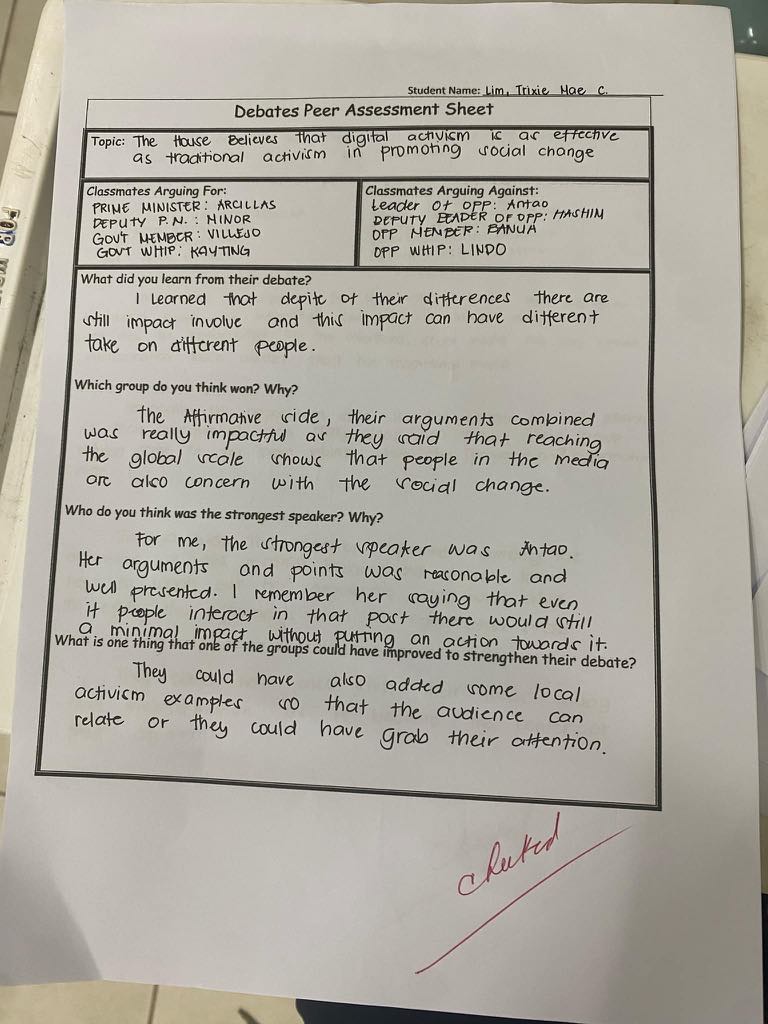 Student Name: Lim, Trixie Mae C.
Debates Peer Assessment Sheet
Topic: The House Believes that digital activism is as effective
as traditional activism in promoting social change
Classmates Arguing For:
PRIME MINISTER: ARCILLAS
DEPUTY P.M.: MINOR
GOV'T MEMBER: VILLEJO
GOVT WHIP: KAYTING
Classmates Arguing Against:
Leader of opp: Antao
DEPUTY LEADER OF OPP: HASHIM
OPP MEMBER: BANUA
OPP WHIP: LINDO
What did you learn from their debate?
I learned that depite of their differences there are
still impact involve and this impact can have different
take on different people.
Which group do you think won? Why?
The Affirmative side, their arguments combined
was really impactful as they said that reaching
the global scale shows that people in the media
are also concern with the social change.
Who do you think was the strongest speaker? Why?
For me, the strongest speaker was Antao.
Her arguments and points was reasonable and
well presented. I remember her saying that even
if people interact in that post there would still
a minimal impact without putting an action towards it.
What is one thing that one of the groups could have improved to strengthen their debate?
They could have also added some local
activism examples so that the audience can
relate or they could have grab their attention.
checked